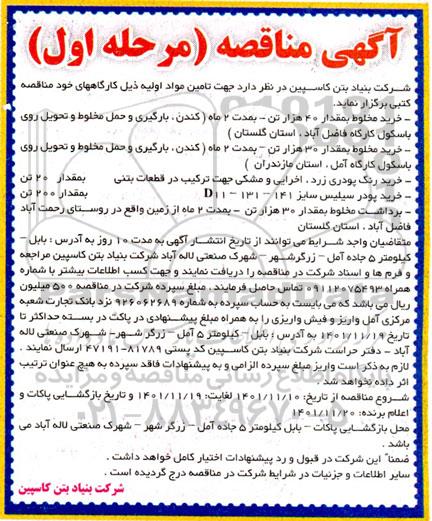 آگهی مناقصه (مرحله اول)
شرکت بنیاد بتن کاسپین در نظر دارد جهت تامین مواد اولیه ذیل کارگاههای خود مناقصه
کتبی برگزار نماید.
- خرید مخلوط بمقدار ۴۰ هزار تن - بمدت ۲ ماه ( کندن ، بارگیری و حمل مخلوط و تحویل روی
باسکول کارگاه فاضل آباد ، استان گلستان )
- خرید مخلوط بمقدار ۳۰ هزار تن - بمدت ۲ ماه ( کندن ، بارگیری و حمل مخلوط و تحویل روی
باسکول کارگاه آمل ، استان مازندران )
- خرید رنگ پودری زرد ، اخرایی و مشکی جهت ترکیب در قطعات بتنی بمقدار ۲۰ تن
- خرید پودر سیلیس سایز ۱۴۱ - ۱۳۱ - D۱۱ بمقدار ۲۰۰ تن
- برداشت مخلوط بمقدار ۳۰ هزار تن - بمدت ۲ ماه از زمین واقع در روستای رحمت آباد
فاضل آباد ، استان گلستان
متقاضیان واجد شرایط می توانند از تاریخ انتشار آگهی به مدت ۱۰ روز به آدرس : بابل
کیلومتر ۵ جاده آمل - زرگرشهر - شهرک صنعتی لاله آباد شرکت بنیاد بتن کاسپین مراجعه
و فرم ها و اسناد شرکت در مناقصه را دریافت نمایند و جهت کسب اطلاعات بیشتر با شماره
همراه ۰۹۱۱۲۰۷۵۴۹۳ تماس حاصل فرمایند . مبلغ سپرده شرکت در مناقصه ۵۰۰ میلیون
ریال می باشد که می بایست به حساب سپرده به شماره ۹۲۶۰۶۲۶۸۹ نزد بانک تجارت شعبه
مرکزی آمل واریز و فیش واریزی را به همراه مبلغ پیشنهادی در پاکت در بسته حداکثر تا
تاریخ ۱۴۰۱/۱۱/۱۹ به آدرس : بابل - کیلومتر ۵ آمل - زرگر شهر - شهرک صنعتی لاله
آباد - دفتر حراست شرکت بنیاد بتن کاسپین کد پستی ۸۱۷۸۹-۴۷۱۹۱ ارسال نمایند .
لازم به ذکر است واریز مبلغ سپرده الزامی و به پیشنهادات فاقد سپرده به هیچ عنوان ترتیب
اثر داده نخواهد شد .
شروع مناقصه از تاریخ: ۱۴۰۱/۱۱/۱۰ لغایت: ۱۴۰۱/۱۱/۱۹ و تاریخ بازگشایی پاکات و
اعلام برنده: ۱۴۰۱/۱۱/۲۰
محل بازگشایی پاکات - بابل کیلومتر ۵ جاده آمل - زرگر شهر - شهرک صنعتی لاله آباد می
باشد .
ضمناً این شرکت در قبول و رد پیشنهادات اختیار کامل خواهد داشت .
سایر اطلاعات و جزئیات در شرایط شرکت در مناقصه درج گردیده است .
شرکت بنیاد بتن کاسپین